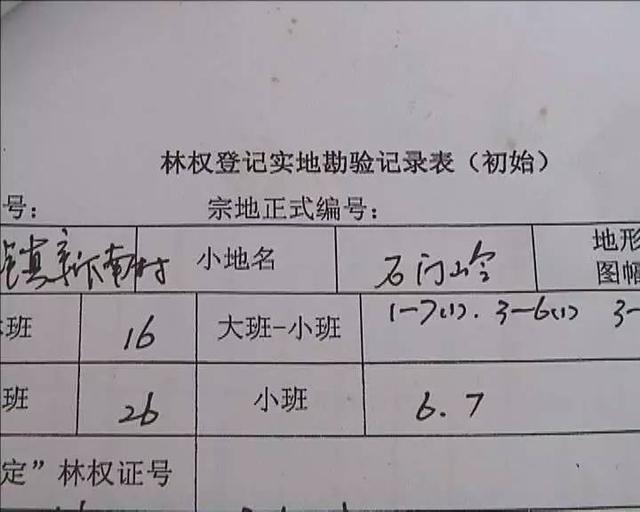 林权登记实地勘验记录表（初始）
号： 宗地正式编号：
镇 村 小地名 石门岭 地形
图幅
班 16 大班-小班 1-7(1). 3-6(1) 3-
班 26 小班 6.7
定”林权证号